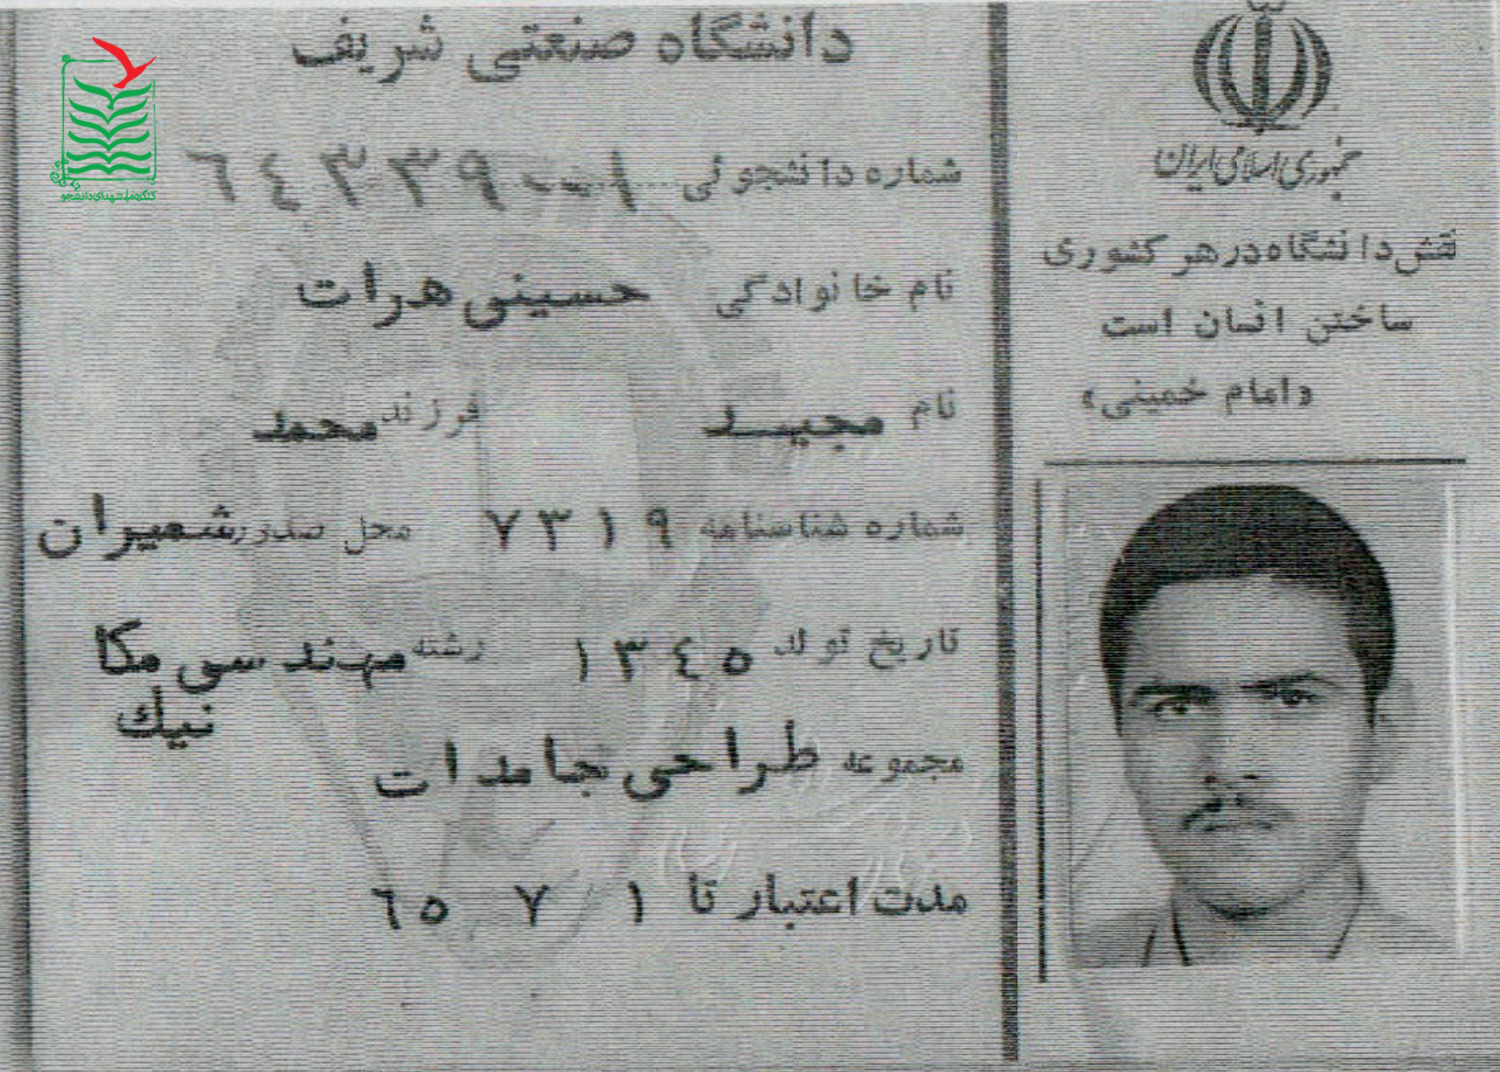 جمهوری اسلامی ایران
نقش دانشگاه در هر کشوری
ساختن انسان است
«امام خمینی»
دانشگاه صنعتی شریف
شماره دانشجوئی ٦٤٣٣٩--١
نام خانوادگی حسینی هرات
نام مجید فرزند محمد
شماره شناسنامه ٧٣١٩ محل صدور شمیران
تاریخ تولد ١٣٤٥ رشته مهندسی مکا
نیك
مجموعه طراحی جامدات
مدت اعتبار تا ١ ٧ ٦٥
کنگره ملی شهدای دانشجو